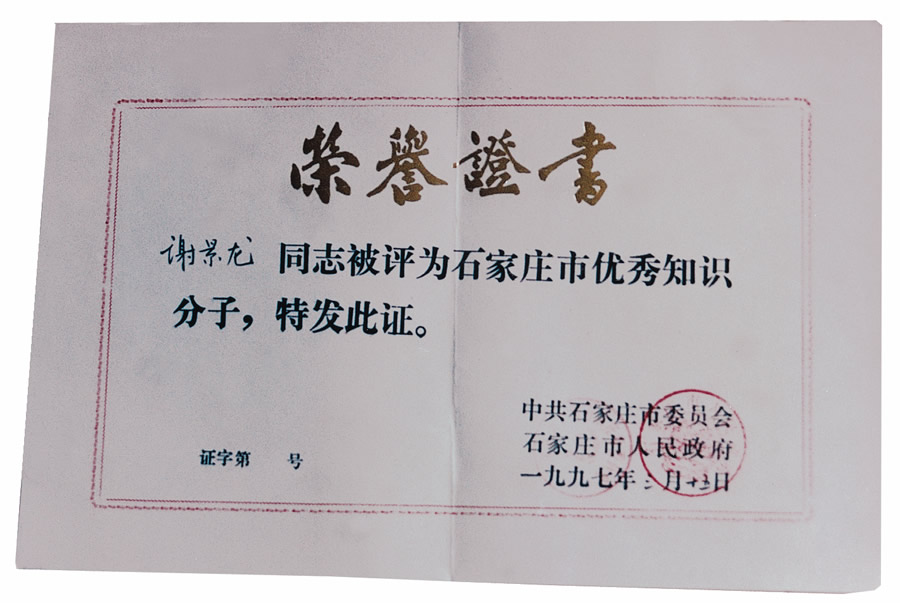 荣誉證書
谢景龙 同志被评为石家庄市优秀知识
分子，特发此证。
中共石家庄市委员会
石家庄市人民政府
证字第 号
一九九七年二月十五日